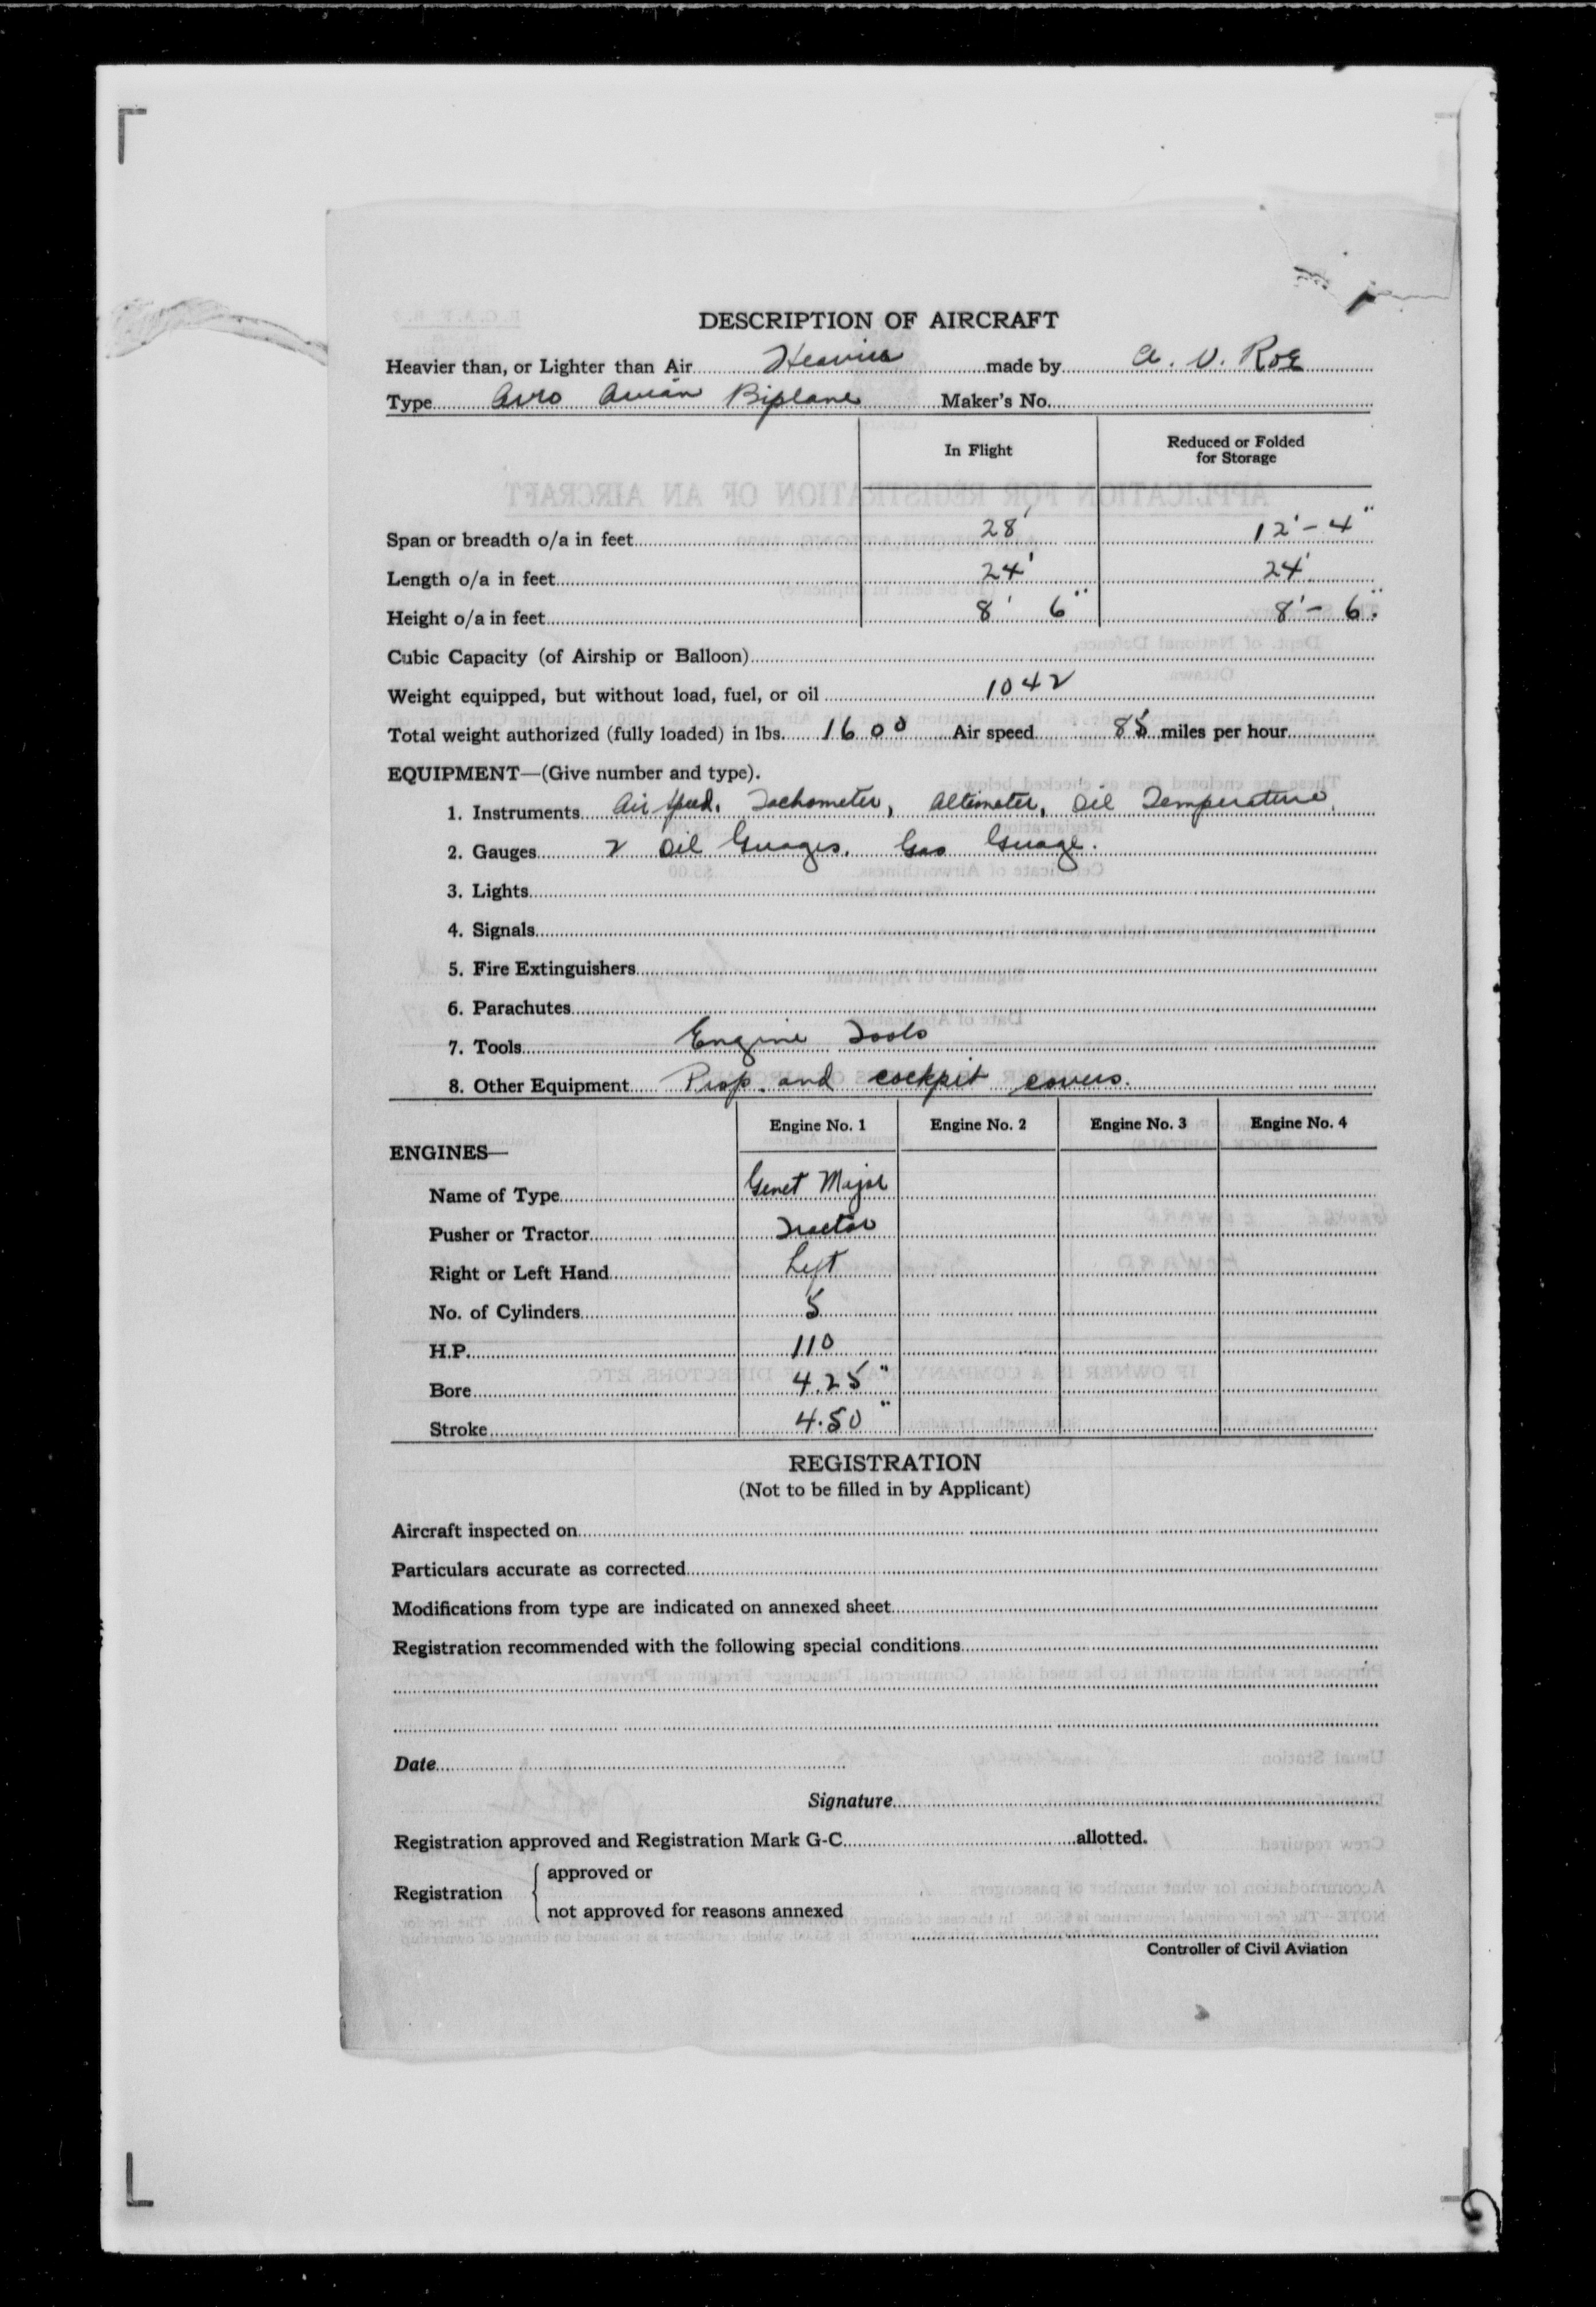 DESCRIPTION OF AIRCRAFT
Heavier than, or Lighter than Air Heavier made by A. V. Roe
Type Avro Avian Biplane Maker's No.
In Flight Reduced or Folded for Storage
Span or breadth o/a in feet 28' 12'-4"
Length o/a in feet 24' 24'
Height o/a in feet 8' 6" 8'-6".
Cubic Capacity (of Airship or Balloon)
Weight equipped, but without load, fuel, or oil 1042
Total weight authorized (fully loaded) in lbs. 1600 Air speed 85 miles per hour
EQUIPMENT—(Give number and type).
1. Instruments Air speed. Tachometer, Altimeter, Oil Temperature.
2. Gauges 2 Oil Guages. Gas Guage.
3. Lights
4. Signals
5. Fire Extinguishers
6. Parachutes
7. Tools Engine Tools
8. Other Equipment Prop. and cockpit covers.
Engine No. 1 Engine No. 2 Engine No. 3 Engine No. 4
ENGINES—
Name of Type Genet Major
Pusher or Tractor Tractor
Right or Left Hand Left
No. of Cylinders 5
H.P. 110
Bore 4.25"
Stroke 4.50"
REGISTRATION
(Not to be filled in by Applicant)
Aircraft inspected on
Particulars accurate as corrected
Modifications from type are indicated on annexed sheet
Registration recommended with the following special conditions
Date
Signature
Registration approved and Registration Mark G-C allotted.
approved or
Registration
not approved for reasons annexed
Controller of Civil Aviation